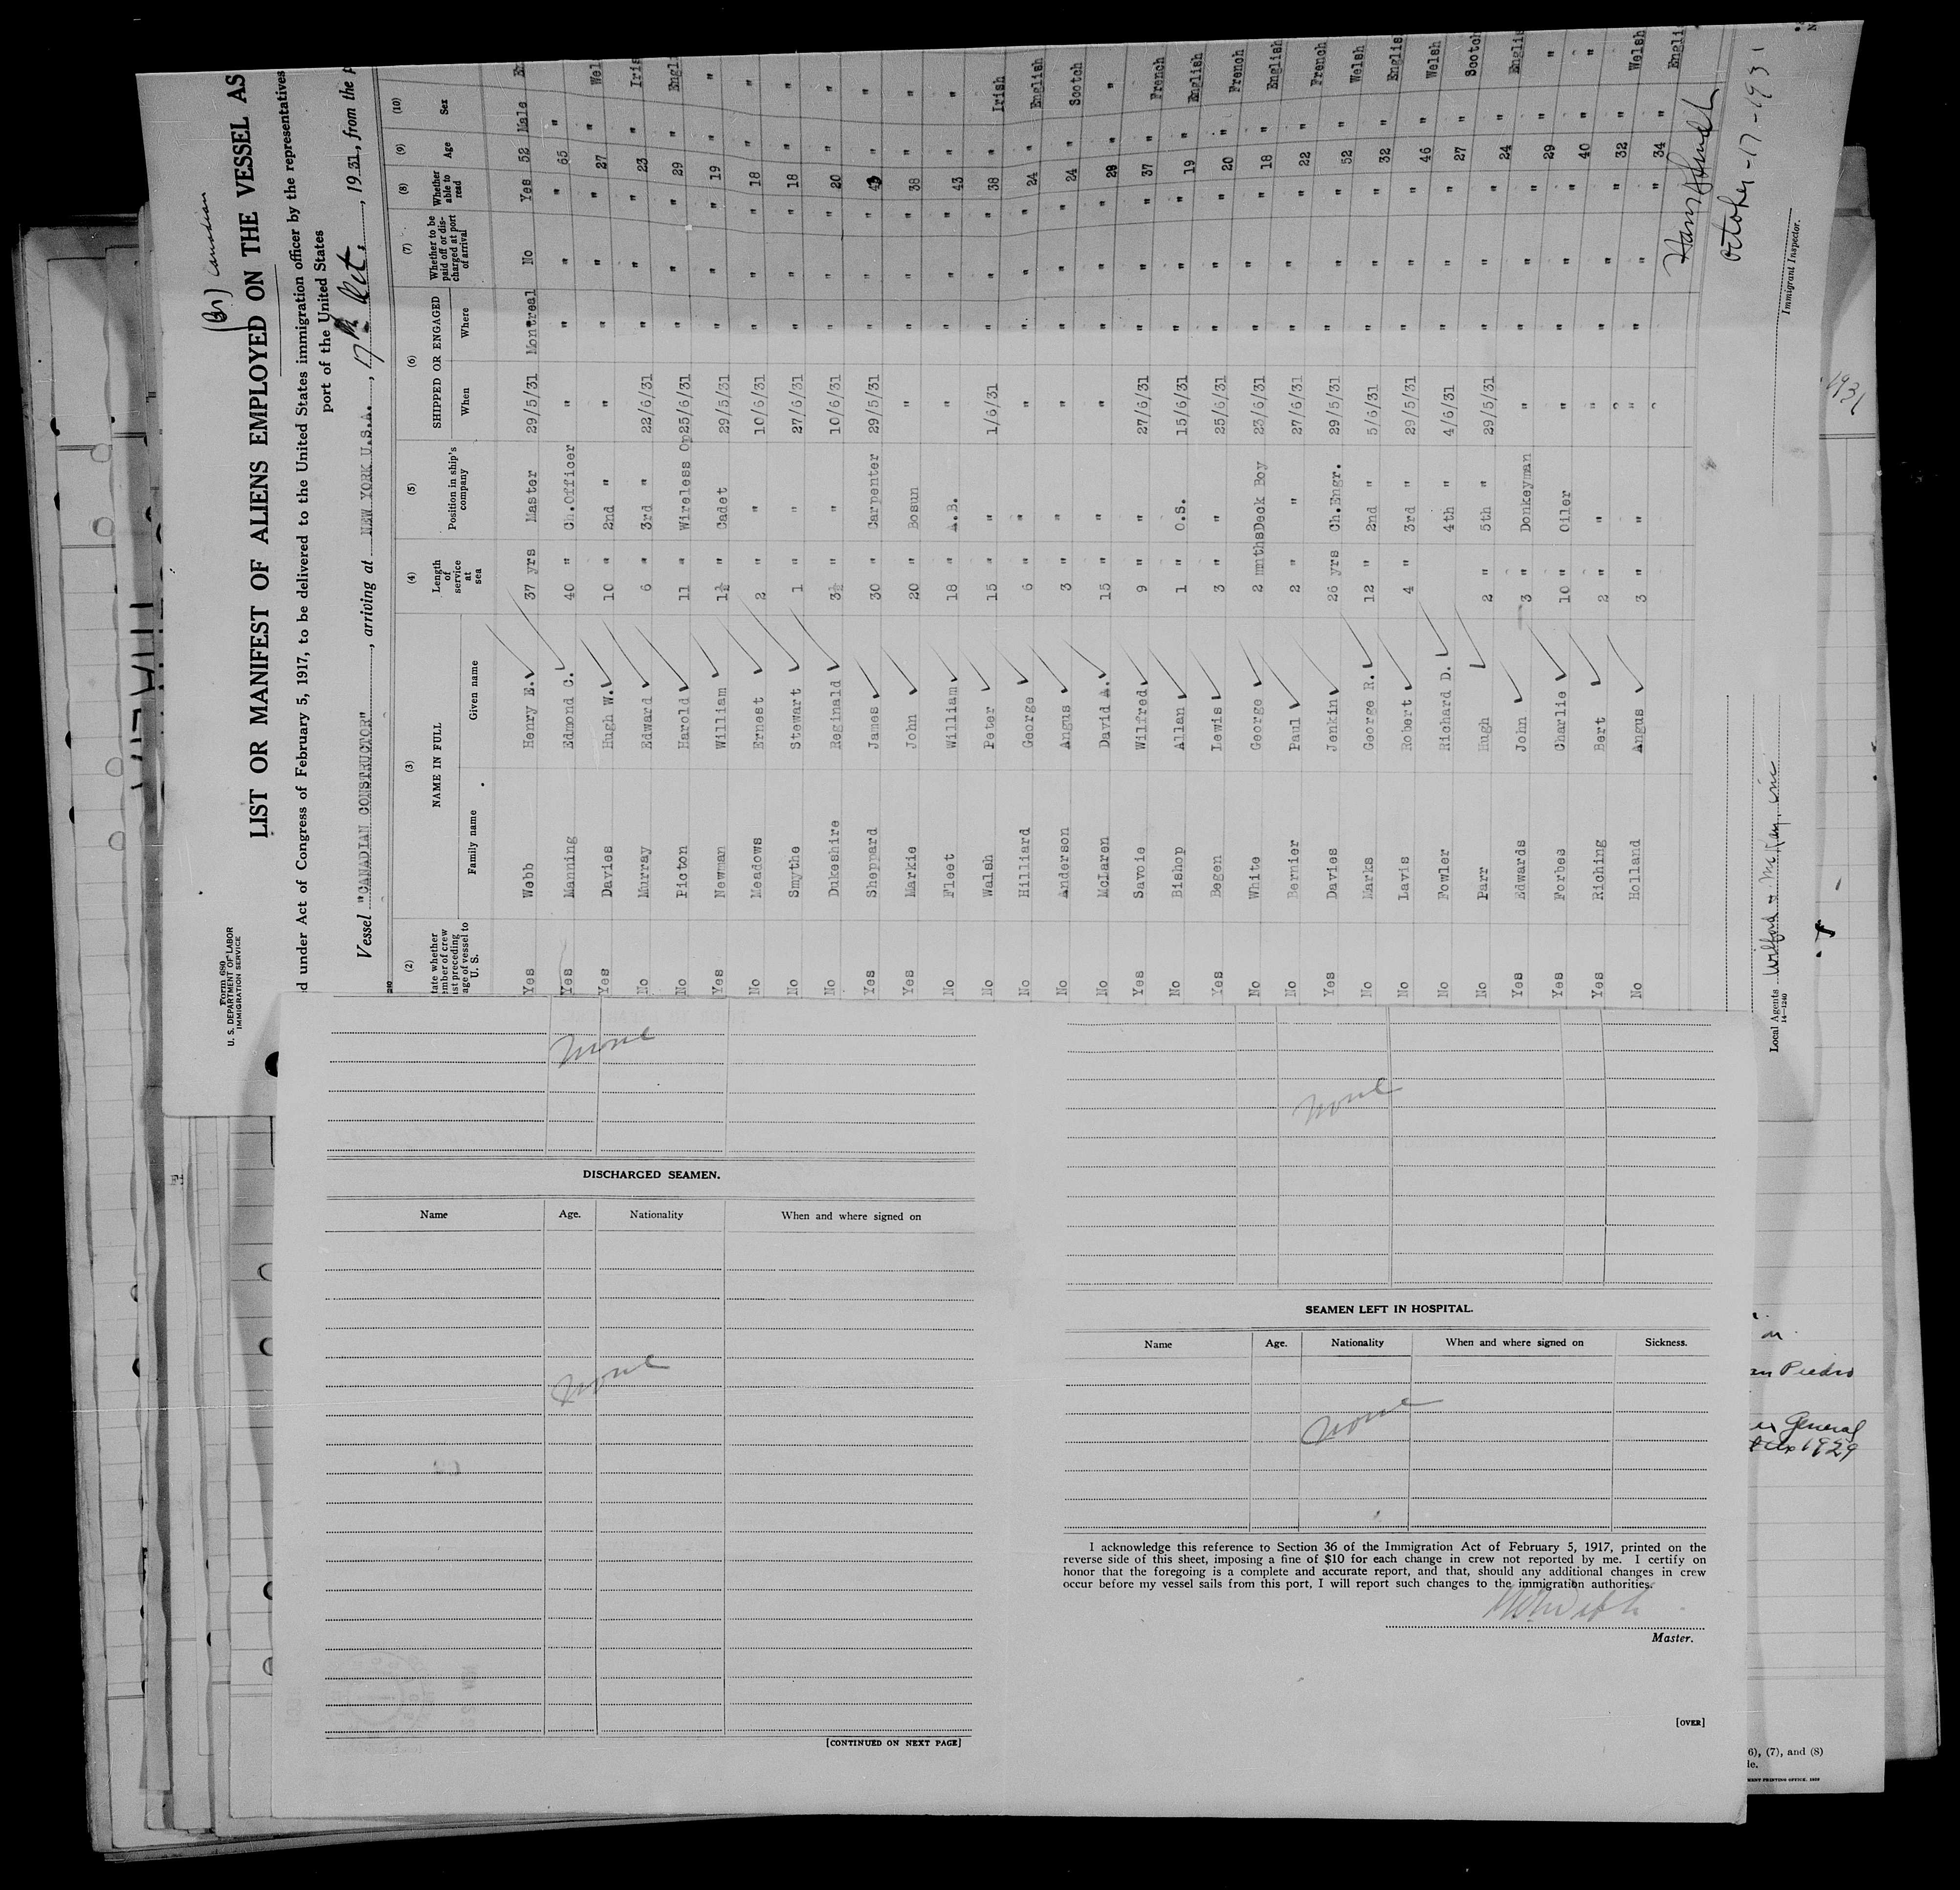 (Br) Canadian
Form 680
U. S. DEPARTMENT OF LABOR
IMMIGRATION SERVICE
LIST OR MANIFEST OF ALIENS EMPLOYED ON THE VESSEL AS
d under Act of Congress of February 5, 1917, to be delivered to the United States immigration officer by the representatives
port of the United States
Vessel "CANADIAN CONSTRUCTOR", arriving at NEW YORK U.S.A., 17th Oct., 1931, from the
(2) (3) (4) (5) (6) (7) (8) (9) (10)
tate whether
mber of crew
st preceding
age of vessel to
U. S.
NAME IN FULL
Family name
Given name
Length
of
service
at
sea
Position in ship's
company
SHIPPED OR ENGAGED
When
Where
Whether to be
paid off or dis-
charged at port
of arrival
Whether
able to
read
Age
Sex
Yes Webb Henry E. 37 yrs Master 29/5/31 Montreal No Yes 52 Male En
Yes Manning Edmond C. 40 " Ch.Officer " " " " 65 "
Yes Davies Hugh W. 10 " 2nd " " " " " 27 " Wel
No Murray Edward 6 " 3rd " 22/6/31 " " " 23 " Iris
No Picton Harold 11 " Wireless Op 25/6/31 " " " 29 " Engl
Yes Newman William 1½ " Cadet 29/5/31 " " " 19 " "
No Meadows Ernest 2 " " 10/6/31 " " " 18 " "
No Smythe Stewart 1 " " 27/6/31 " " " 18 " "
No Dukeshire Reginald 3½ " " 10/6/31 " " " 20 " "
Yes Sheppard James 30 " Carpenter 29/5/31 " " " " "
Yes Markie John 20 " Bosun " " " " 38 " "
No Fleet William 18 " A.B. " " " " 43 " "
No Walsh Peter 15 " " 1/6/31 " " " 38 " Irish
No Hilliard George 6 " " " " " " 24 " English
No Anderson Angus 3 " " " " " " 24 " Scotch
No McLaren David A. 15 " " " " " " 28 " "
Yes Savoie Wilfred 9 " " 27/6/31 " " " 37 " French
No Bishop Allan 1 " O.S. 15/6/31 " " " 19 " English
Yes Begen Lewis 3 " " 25/6/31 " " " 20 " French
No White George 2 mnths Deck Boy 23/6/31 " " " 18 " English
No Bernier Paul 2 " " 27/6/31 " " " 22 " French
Yes Davies Jenkin 26 yrs Ch.Engr. 29/5/31 " " " 52 " Welsh
No Marks George R. 12 " 2nd " 5/6/31 " " " 32 " Englis
No Lavis Robert 4 " 3rd " 29/5/31 " " " 46 " Welsh
No Fowler Richard D. 4th " 4/6/31 " " " 27 " Scotch
No Parr Hugh 2 " 5th " 29/5/31 " " " 24 " Englis
Yes Edwards John 3 " Donkeyman " " " " 29 " "
Yes Forbes Charlie 10 " Oiler " " " " 40 " "
Yes Riching Bert 2 " " " " " " 32 " Welsh
No Holland Angus 3 " " " " " " 34 " Engli
October-17-1931
Immigrant Inspector.
Local Agents
14—1240
None
DISCHARGED SEAMEN.
Name Age. Nationality When and where signed on
None
[CONTINUED ON NEXT PAGE]
None
SEAMEN LEFT IN HOSPITAL.
Name Age. Nationality When and where signed on Sickness.
None
I acknowledge this reference to Section 36 of the Immigration Act of February 5, 1917, printed on the
reverse side of this sheet, imposing a fine of $10 for each change in crew not reported by me. I certify on
honor that the foregoing is a complete and accurate report, and that, should any additional changes in crew
occur before my vessel sails from this port, I will report such changes to the immigration authorities.
Master.
[OVER]
1931
an Pedro
General
1929
6), (7), and (8)